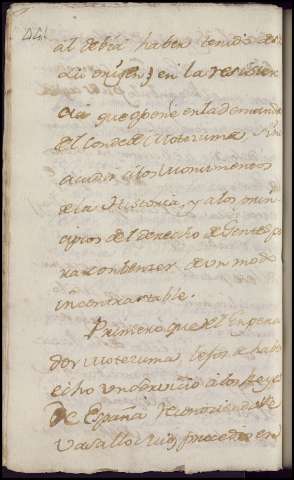 al debia haber tenido
su origen) en la resisten
cia que opone en la demanda
el Conde de Moteruma.
acudir a los Monumentos
de la Historia, y a los prin
cipios del derecho de Gentes pa
ra conbenzer de un modo
incontrastable.
Primero que el Empera
dor Moteruma lejos de haber
echo una a los Reyes
de España reconociendose
Vasallo suyo procedio en